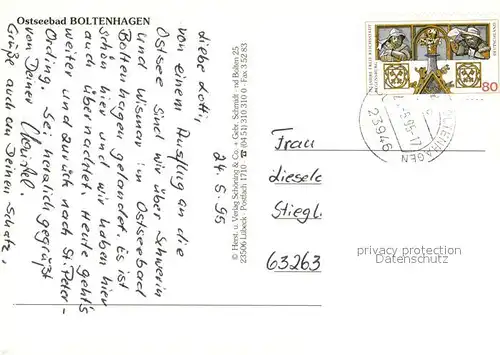 Ostseebad BOLTENHAGEN
24.5.95
Liebe Lotti,
von einem Ausflug an die
Ostsee sind wir über Schwerin
und Wismar im Ostseebad
Boltenhagen gelandet. Es ist
schön hier und wir haben hier
auch übernachtet. Heute geht's
weiter und zurück nach St. Peter-
Ording. Sei herzlich gegrüßt
von Deiner
Grüße auch an Deinen Schatz.
© Herst. u. Verlag Schöning & Co. + Gebr. Schmidt
23506 Lübeck · Postfach 1710 · ☎ (04 51) 310 310 0 · Fax 3 52 83
80
BOLTENHAGEN
23946
Frau
Liesele
Stiegl.
63263
privacy protection
Datenschutz